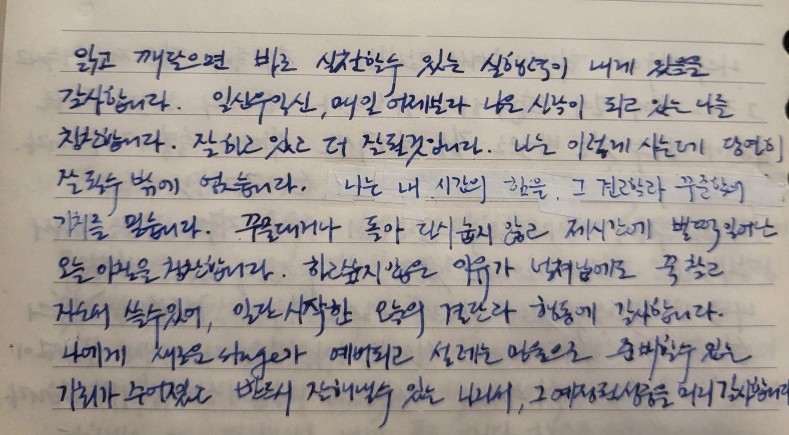 읽고 깨달으면 바로 실천할수 있는 실행력이 내게 있음을
감사합니다. 일신우일신, 매일 어제보다 나은 신낙이 되고 있는 나를
칭찬합니다. 잘하고 있고 더 잘될것입니다. 나는 이렇게 사는데 당연히
잘 될수 밖에 없습니다. 나는 내 시간의 힘을, 그 견고함과 꾸준함의
가치를 믿습니다. 꾸물대거나 돌아 다시눕지 않고 제시간에 벌떡 일어난
오늘 아침을 칭찬합니다. 하고싶지않은 이유가 넘쳐남에도 꾹 참고
자소서 쓸수있어, 일단 시작한 오늘의 결단과 행동에 감사합니다.
나에게 새로운 stage가 예비되고 설레는 마음으로 준비할수 있는
기회가 주어졌고 반드시 잘해낼수 있는 나라서, 그 예정된성공을 미리 감사합니다